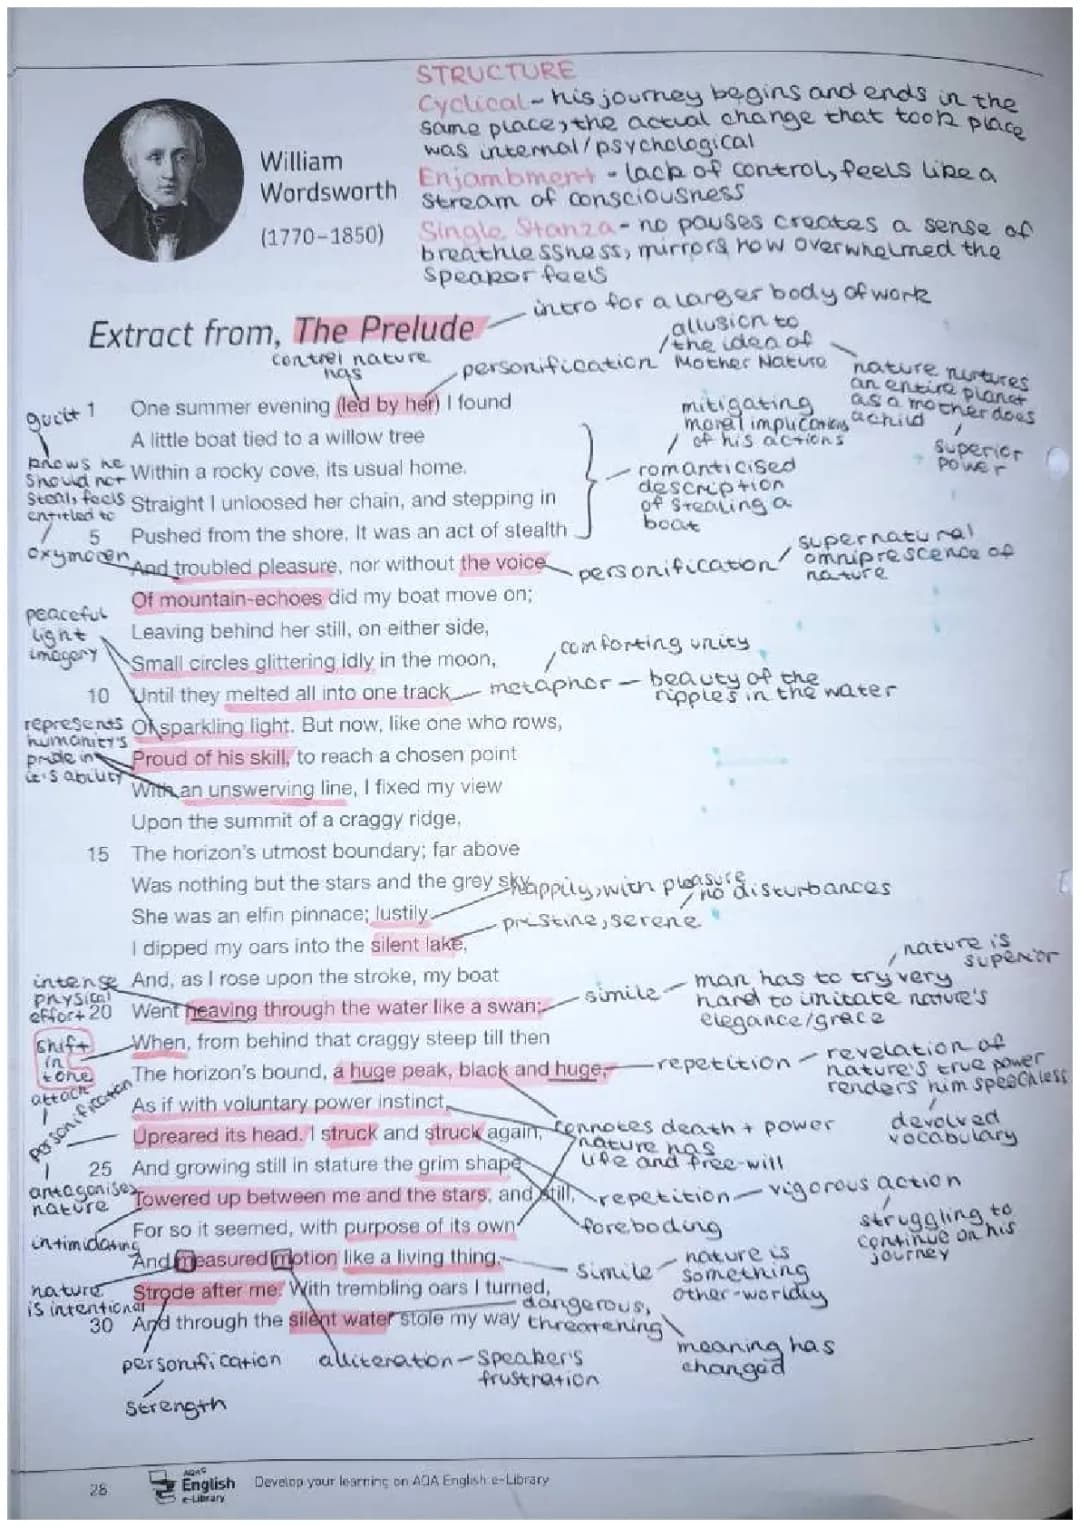 STRUCTURE
Cyclical - his journey begins and ends in the
same place, the actual change that took place
was internal/psychological
Enjambment - lack of control, feels like a
stream of consciousness
Single Stanza - no pauses creates a sense of
breathlessness, mirrors how overwhelmed the
speaker feels
William
Wordsworth
(1770–1850)
intro for a larger body of work
Extract from, The Prelude
control nature
has
personification
allusion to
the idea of
Mother Nature
nature nurtures
an entire planet
as a mother does
a child
superior
power
guilt
1 One summer evening (led by her) I found
A little boat tied to a willow tree
mitigating
moral implications
of his actions
knows he
should not
steal, feels
entitled to
Within a rocky cove, its usual home.
Straight I unloosed her chain, and stepping in
romanticised
description
of stealing a
boat
5 Pushed from the shore. It was an act of stealth
oxymoron
And troubled pleasure, nor without the voice
personification
supernatural
omniprescence of
nature
Of mountain-echoes did my boat move on;
peaceful
light
imagery
Leaving behind her still, on either side,
Small circles glittering idly in the moon,
comforting unity
10 Until they melted all into one track
metaphor - beauty of the
ripples in the water
represents
humanity's
pride in
it's ability
Of sparkling light. But now, like one who rows,
Proud of his skill, to reach a chosen point
With an unswerving line, I fixed my view
Upon the summit of a craggy ridge,
15 The horizon's utmost boundary; far above
Was nothing but the stars and the grey sky.
happily, with pleasure
no disturbances
She was an elfin pinnace; lustily
pristine, serene
I dipped my oars into the silent lake,
intense
physical
effort
And, as I rose upon the stroke, my boat
20 Went heaving through the water like a swan;
simile
man has to try very
hard to imitate nature's
elegance/grace
nature is
superior
shift
in
tone
When, from behind that craggy steep till then
The horizon's bound, a huge peak, black and huge,
repetition
revelation of
nature's true power
renders him speechless
devolved
vocabulary
attack
personification
As if with voluntary power instinct,
connotes death + power
nature has
life and free-will
Upreared its head. I struck and struck again,
25 And growing still in stature the grim shape
antagonises
nature
Towered up between me and the stars, and still,
repetition - vigorous action
struggling to
continue on his
journey
foreboding
intimidating
For so it seemed, with purpose of its own
And measured motion like a living thing,
simile
nature is
something
other-worldly
nature
is intentional
Strode after me. With trembling oars I turned,
30 And through the silent water stole my way
dangerous,
threatening
meaning has
changed
personification
strength
alliteration - speaker's
frustration
28
AQA
English
e-Library
Develop your learning on AQA English e-Library